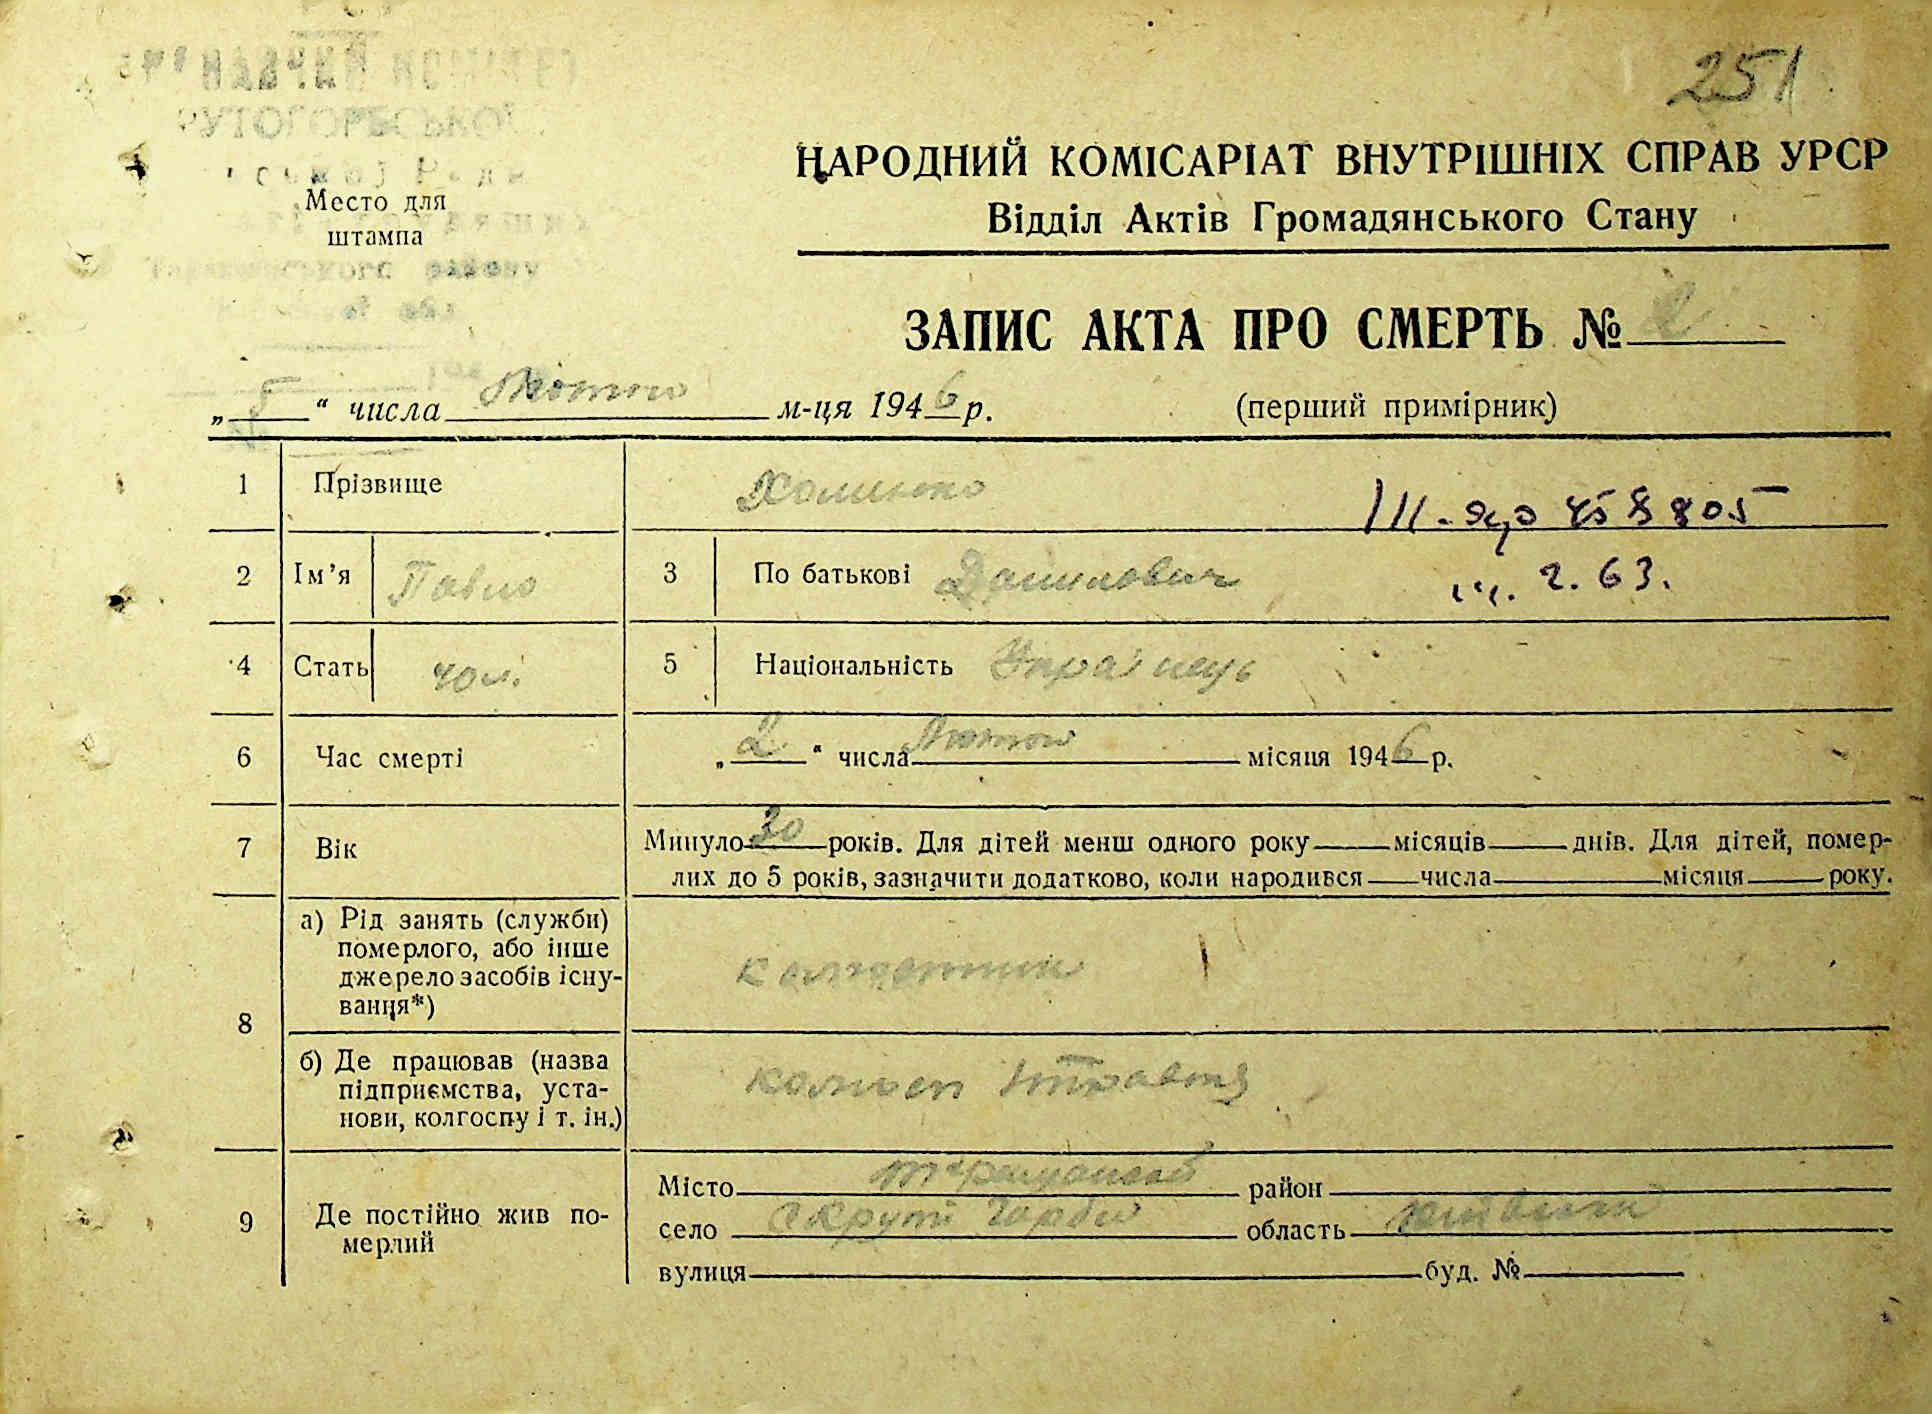 251
НАРОДНИЙ КОМІСАРІАТ ВНУТРІШНІХ СПРАВ УРСР
Відділ Актів Громадянського Стану
Место для
штампа
ЗАПИС АКТА ПРО СМЕРТЬ № 2
„5“ числа Лютого м-ця 1946 р. (перший примірник)
1 Прізвище Хоменко
2 Ім’я Павло 3 По батькові Данилович
2. 63.
4 Стать чол. 5 Національність Українець
6 Час смерті „2“ числа Лютого місяця 1946 р.
7 Вік Минуло 30 років. Для дітей менш одного року місяців днів. Для дітей, помер-
лих до 5 років, зазначити додатково, коли народився числа місяця року.
8 а) Рід занять (служби)
померлого, або інше
джерело засобів існу-
вання*) колгоспник
б) Де працював (назва
підприємства, уста-
нови, колгоспу і т. ін.) колгосп 1 травня
9 Де постійно жив по-
мерлий
Місто район
село с Круті Горби область київська
вулиця буд. №